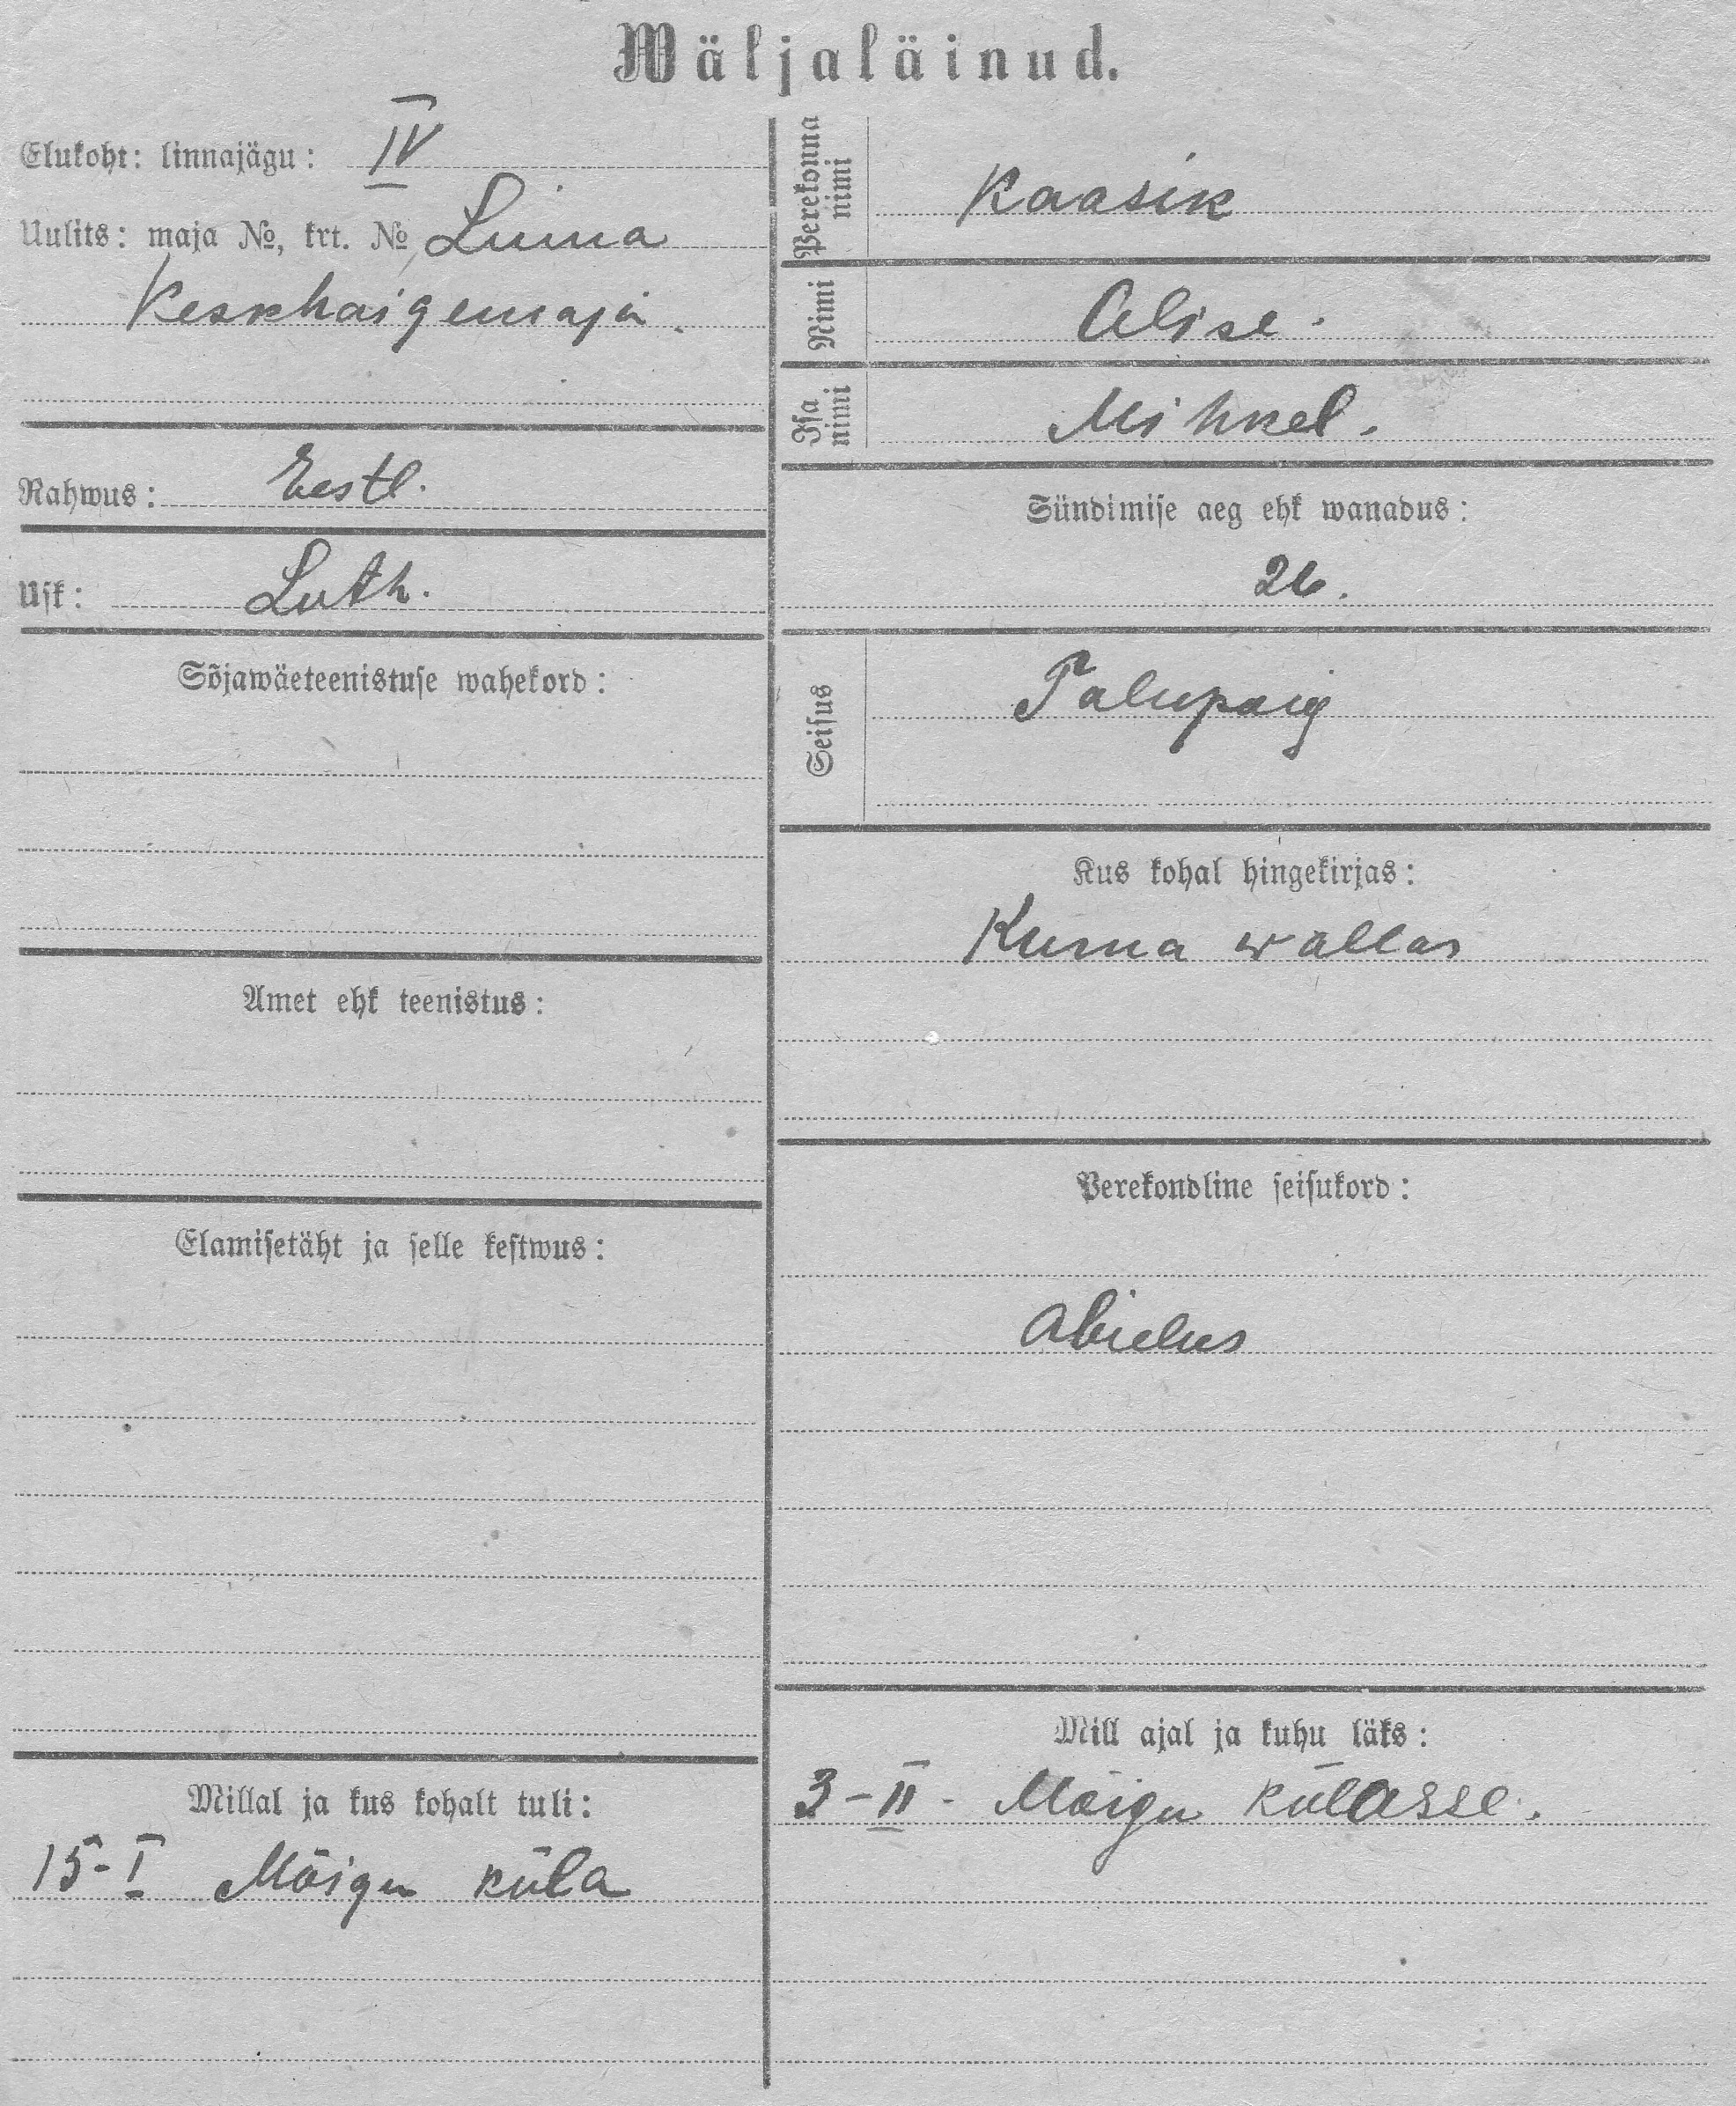 Wäljaläinud.
Elukoht: linnajägu: IV
Uulits: maja №, krt. № Linna
Keskhaigemaja.
Rahwus: Eestl.
Usk: Luth.
Sõjawäeteenistuse wahekord:
Amet ehk teenistus:
Elamisetäht ja selle kestwus:
Millal ja kus kohalt tuli:
15-I Mõigu küla
Perekonna nimi Kaasik
Nimi Alise.
Isa nimi Mihkel.
Sündimise aeg ehk wanadus:
26.
Seisus Talupoig
Kus kohal hingekirjas:
Kurna wallas
Perekondline seisukord:
Abielus
Mill ajal ja kuhu läks:
3-II- Mõigu külasse.